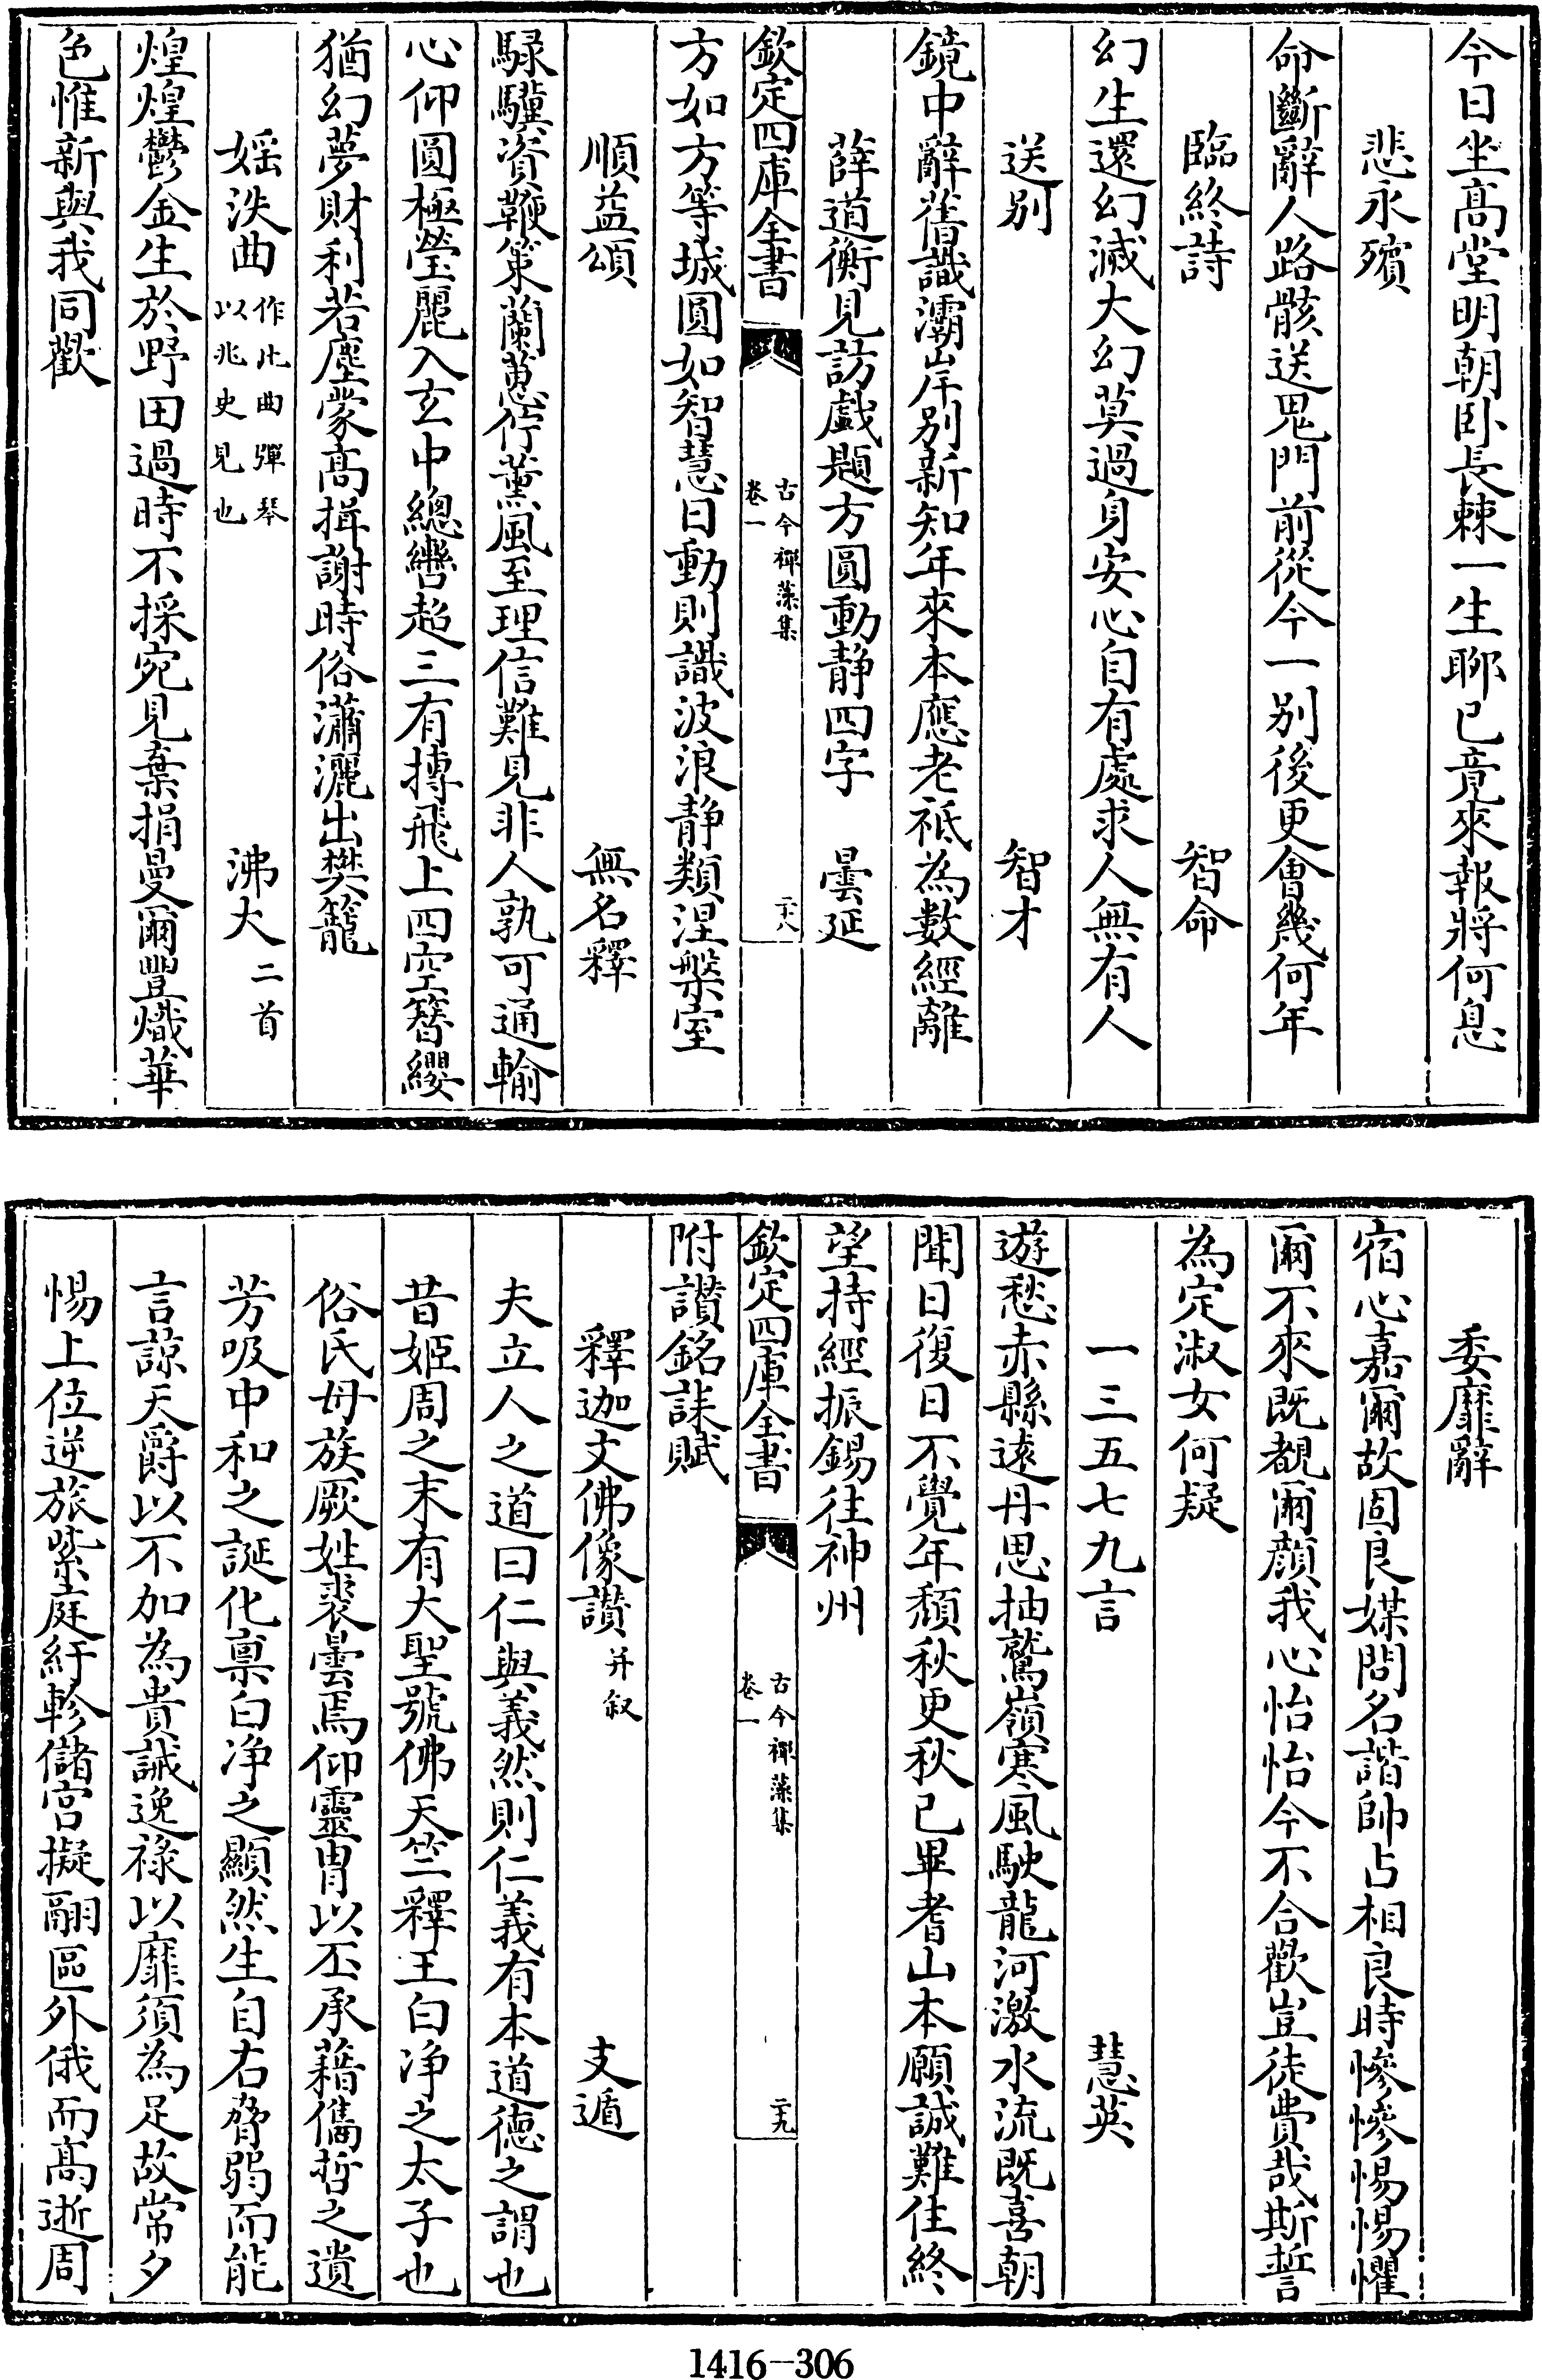 今日坐高堂明朝卧長棘一生聊已竟來報將何息
悲永殯
命斷辭人路骸送鬼門前從今一別後更會幾何年
臨終詩　智命
幻生還幻滅大幻莫過身安心自有處求人無有人
送別　智才
鏡中辭舊識灞岸別新知年來本應老祗為數經離
薛道衡見訪戲題方圓動静四字　曇延
欽定四庫全書　古今禪藻集　卷一　二十八
方如方等城圓如智慧日動則識波浪静類涅槃室
順益頌　無名釋
騄驥資鞭策蘭蕙佇薰風至理信難見非人孰可通輸
心仰圓極瑩麗入玄中總轡超三有摶飛上四空簪纓
猶幻夢財利若塵蒙高揖謝時俗瀟灑出樊籠
婬泆曲　作此曲彈琴以兆史見也　沸大　二首
煌煌鬱金生於野田過時不採宛見棄捐曼爾豐熾華
色惟新與我同歡
委靡辭
宿心嘉爾故固良媒問名諧帥占相良時慘慘惕惕懼
爾不來既覩爾顔我心怡怡今不合歡豈徒費哉斯誓
為定淑女何疑
一三五七九言　慧英
遊愁赤縣遠丹思抽鷲嶺寒風駛龍河激水流既喜朝
聞日復日不覺年頹秋更秋已畢耆山本願誠難住終
望持經振錫往神州
欽定四庫全書　古今禪藻集　卷一　二十九
附讃銘誄賦
釋迦文佛像讃　并叙　支遁
夫立人之道曰仁與義然則仁義有本道德之謂也
昔姬周之末有大聖號佛天竺釋王白净之太子也
俗氏母族厥姓裘曇焉仰靈胄以丕承藉儁哲之遺
芳吸中和之誕化稟白净之顯然生自右脅弱而能
言諒天爵以不加為貴誡逸祿以靡須為足故常夕
惕上位逆旅紫庭紆軫儲宮擬翮區外俄而高逝周
1416-306